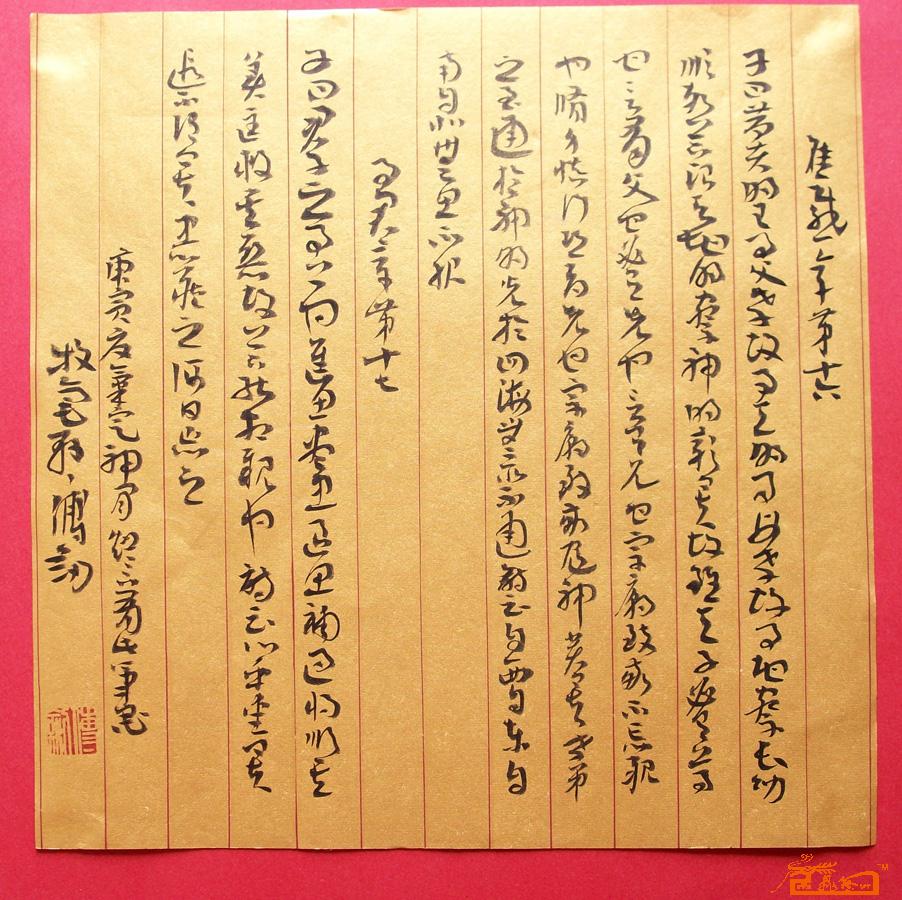 應感章第十六
子曰昔者明王事父孝故事天明事母孝故事地察長幼
順故上下治天地明察神明彰矣故雖天子必有尊
也言有父也必有先也言有兄也宗廟致敬不忘親
也脩身慎行恐辱先也宗廟致敬鬼神著矣孝弟
之至通於神明光於四海無所不通詩云自西自東自
南自北無思不服
事君章第十七
子曰君子之事上也進思盡忠退思補過將順其
美匡救其惡故上下能相親也詩云心乎愛矣
遐不謂矣中心藏之何日忘之
庚寅夏